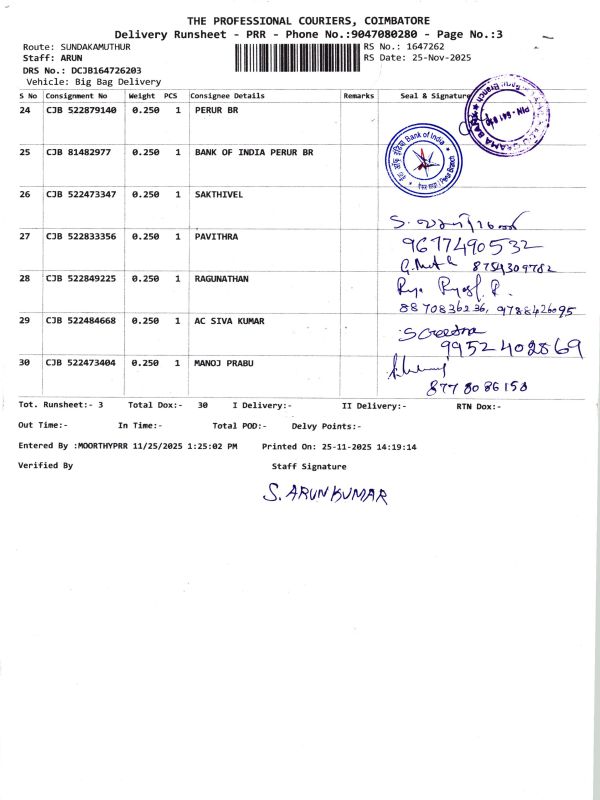 THE PROFESSIONAL COURIERS, COIMBATORE
Delivery Runsheet - PRR - Phone No.:9047080280 - Page No.:3
Route: SUNDAKAMUTHUR RS No.: 1647262
Staff: ARUN RS Date: 25-Nov-2025
DRS No.: DCJB164726203
Vehicle: Big Bag Delivery
S No Consignment No Weight PCS Consignee Details Remarks Seal & Signature
24 CJB 522879140 0.250 1 PERUR BR
PIN - 641 010
25 CJB 81482977 0.250 1 BANK OF INDIA PERUR BR
Bank of India
Perur Branch
26 CJB 522473347 0.250 1 SAKTHIVEL
27 CJB 522833356 0.250 1 PAVITHRA
9677490532
28 CJB 522849225 0.250 1 RAGUNATHAN
8754309782
8870836236, 9788426095
29 CJB 522484668 0.250 1 AC SIVA KUMAR
9952402869
30 CJB 522473404 0.250 1 MANOJ PRABU
8778086158
Tot. Runsheet:- 3 Total Dox:- 30 I Delivery:- II Delivery:- RTN Dox:-
Out Time:- In Time:- Total POD:- Delvy Points:-
Entered By :MOORTHYPRR 11/25/2025 1:25:02 PM Printed On: 25-11-2025 14:19:14
Verified By Staff Signature
S. ARUNKUMAR